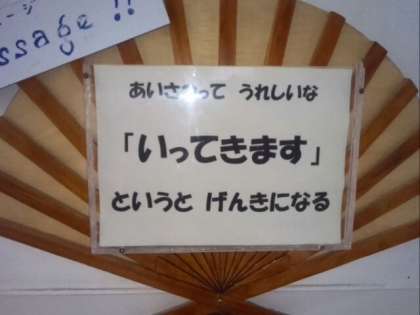 ージ
ssage !!
あいさつって うれしいな
「いってきます」
というと げんきになる